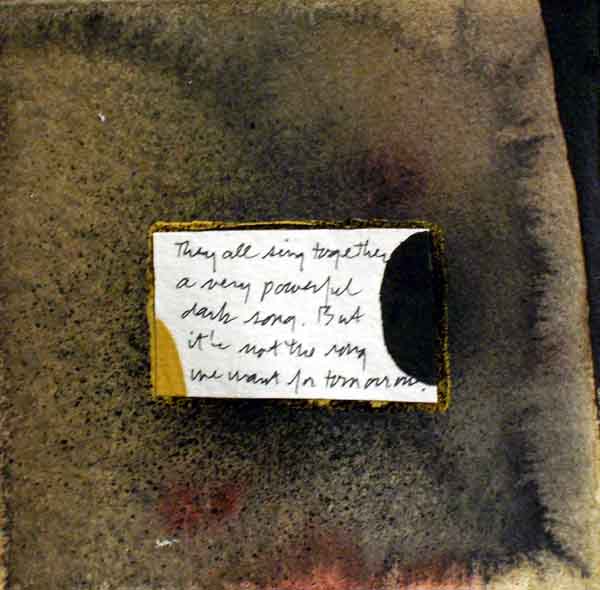 They all sing together
a very powerful
dark song. But
it's not the song
we want for tomorrow.